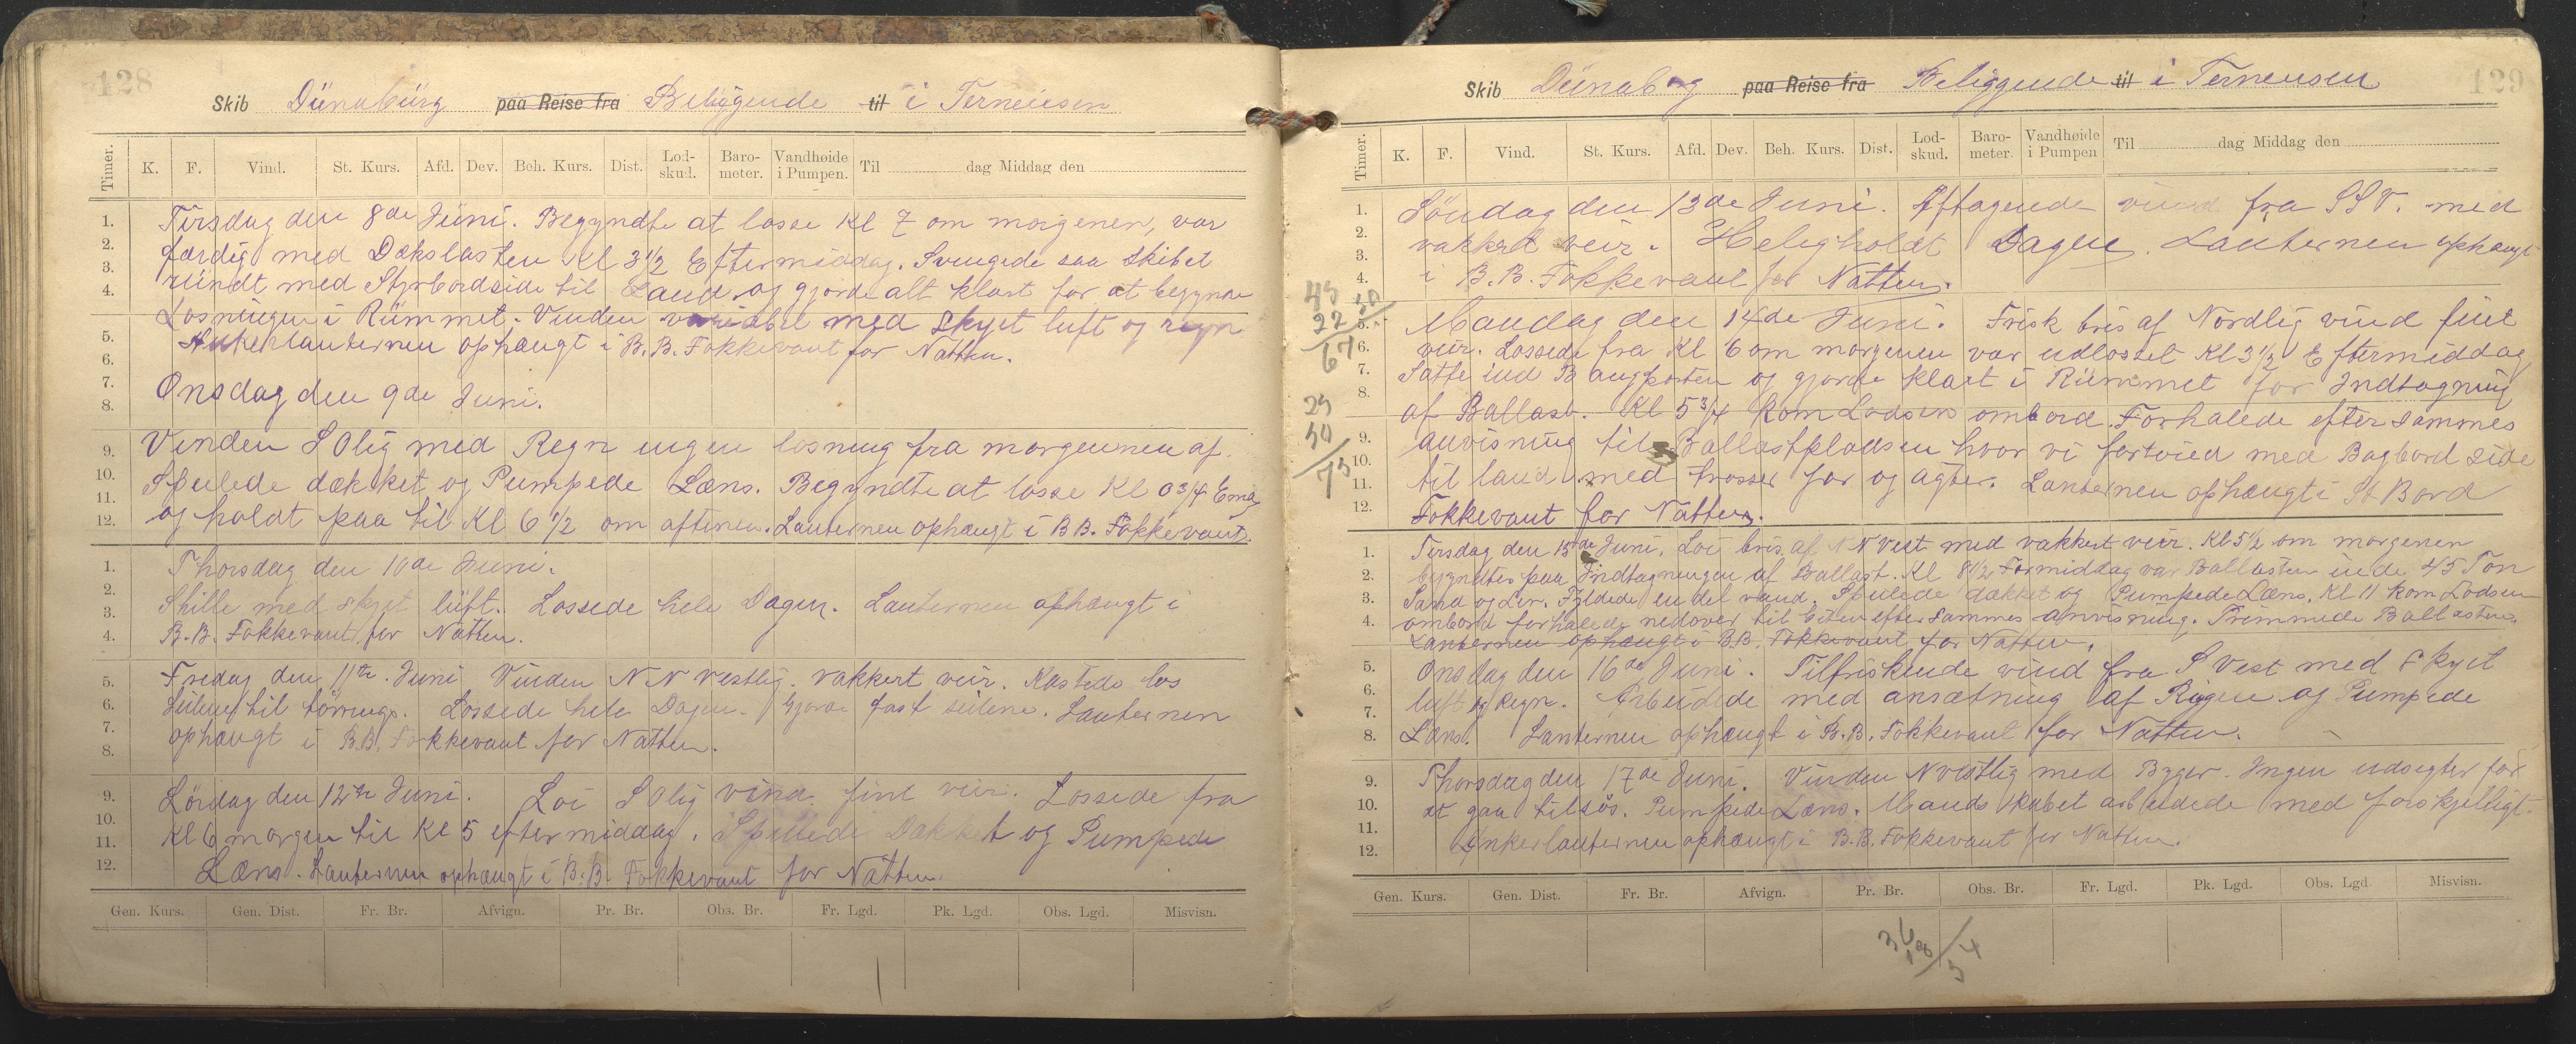 128
Skib Dünabürg paa Reise fra Beliggende til i Terneusen
Timer. K. F. Vind. St. Kurs. Afd. Dev. Beh. Kurs. Dist. Lod-skud. Baro-meter. Vandhøide i Pumpen. Til dag Middag den
Tirsdag den 8de Juni. Begyndte at losse Kl 7 om morgenen, var
færdig med Dækslasten Kl 3 1/2 Eftermiddag. Svingede saa Skibet
rundt med Styrbordside til Land og gjorde alt klart for at begynde
Losningen i Rümmet. Vinden variabel med Skyet luft og regn
Ankerlanternen ophængt i B.B. Fokkevant for Natten.
Onsdag den 9de Juni.
Vinden SOlig med Regn ingen losning fra morgennen af.
Spulede dækket og Pumpede Læns. Begyndte at losse Kl 0 3/4 Emd
og holdt paa til Kl 6 1/2 om aftenen. Lanternen ophængt i BB. Fokkevant.
Thorsdag den 10de Juni.
Stille med skyet lüft. Lossede hele Dagen. Lanternen ophængt i
B.B. Fokkevant for Natten.
Fredag den 11te Juni Vinden NNvestlig. vakkert veir. Kastede los
Seilene til törrings. Lossede hele Dagen. Gjorde fast seilene. Lanternen
ophængt i B.B. Fokkevant for Natten.
Lördag den 12te Juni. Loi SOlig vind fint veir. Lossede fra
Kl 6 morgen til Kl 5 eftermiddag. Spulede Dækket og Pumpede
Læns. Lanternen ophængt i B.B. Fokkevant for Natten.
1.
2.
3.
4.
5.
6.
7.
8.
9.
10.
11.
12.
1.
2.
3.
4.
5.
6.
7.
8.
9.
10.
11.
12.
Gen. Kurs. Gen. Dist. Fr. Br. Afvign. Pr. Br. Obs. Br. Fr. Lgd. Pk. Lgd. Obs. Lgd. Misvisn.
129
Skib Dünaborg paa Reise fra Beliggende til i Terneusen
Timer. K. F. Vind. St. Kurs. Afd. Dev. Beh. Kurs. Dist. Lod-skud. Baro-meter. Vandhøide i Pumpen Til dag Middag den
Söndag den 13de Juni. Aftagende vind fra SSV. med
vakkert veir. Heligholdt Dagen. Lanternen ophængt
i B.B. Fokkevant for Natten.
Mandag den 14de Juni. Frisk bris af Nordlig vind fint
veir. Lossede fra Kl 6 om morgenen var udlosset Kl 3 1/2 Eftermiddag
Satte ind Baugporten og gjorde klart i Rümmet for Indtagning
af Ballast. Kl 5 3/4 kom Lodsen ombord. Forhalede efter sammes
anvisning til Ballastpladsen hvor vi fortöied med Bagbord side
til land med trosser for og agter. Lanternen ophængt i St Bord
Fokkevant for Natten.
Tirsdag den 15de Juni. Loi bris af NNVest med vakkert veir. Kl 5 1/2 om morgenen
begyndtes paa Indtagningen af Ballast. Kl 8 1/2 Formiddag var Ballasten inde 45 Ton
Sand og Ler. Fyldede en del vand. Spulede dækket og Pumpede Læns. Kl 11 kom Lodsen
ombord forhalede nedover til efter sammes anvisning. Trimmede Ballasten.
Lanternen ophængt i B.B. Fokkevant for Natten.
Onsdag den 16de Juni. Tilfriskende vind fra SVest med skyet
luft og Regn. Arbeidede med ansætning af Rigen og Pumpede
Læns. Lanternen ophængt i B.B. Fokkevant for Natten.
Thorsdag den 17de Juni. Vinden NVestlig med Byger. Ingen udsigter for
at gaa tilsös. Pumpede Læns. Mandskabet arbeidede med forskjelligt.
Ankerlanternen ophængt i B.B. Fokkevant for Natten.
1.
2.
3.
4.
5.
6.
7.
8.
9.
10.
11.
12.
1.
2.
3.
4.
5.
6.
7.
8.
9.
10.
11.
12.
45
22 50
67
25
50
75
Gen. Kurs. Gen. Dist. Fr. Br. Afvign. Pr. Br. Obs. Br. Fr. Lgd. Pk. Lgd. Obs. Lgd Misvisn.